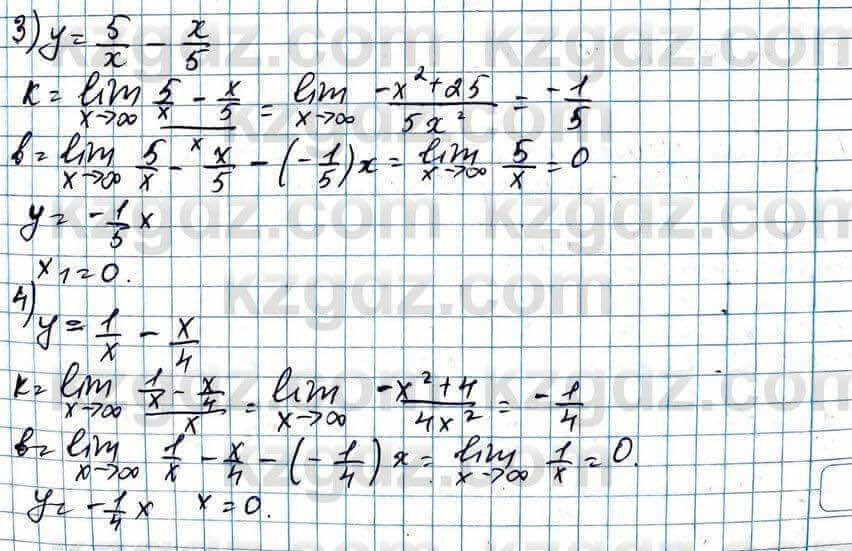 3) y = 5/x - x/5
K = lim x→∞ (5/x - x/5)/x = lim x→∞ (-x² + 25)/(5x²) = -1/5
b = lim x→∞ 5/x - x/5 - (-1/5)x = lim x→∞ 5/x = 0
y = -1/5 x
x₁ = 0.
4) y = 1/x - x/4
K = lim x→∞ (1/x - x/4)/x = lim x→∞ (-x² + 4)/(4x²) = -1/4
b = lim x→∞ 1/x - x/4 - (-1/4)x = lim x→∞ 1/x = 0.
y = -1/4 x x = 0.
kzgdz.com